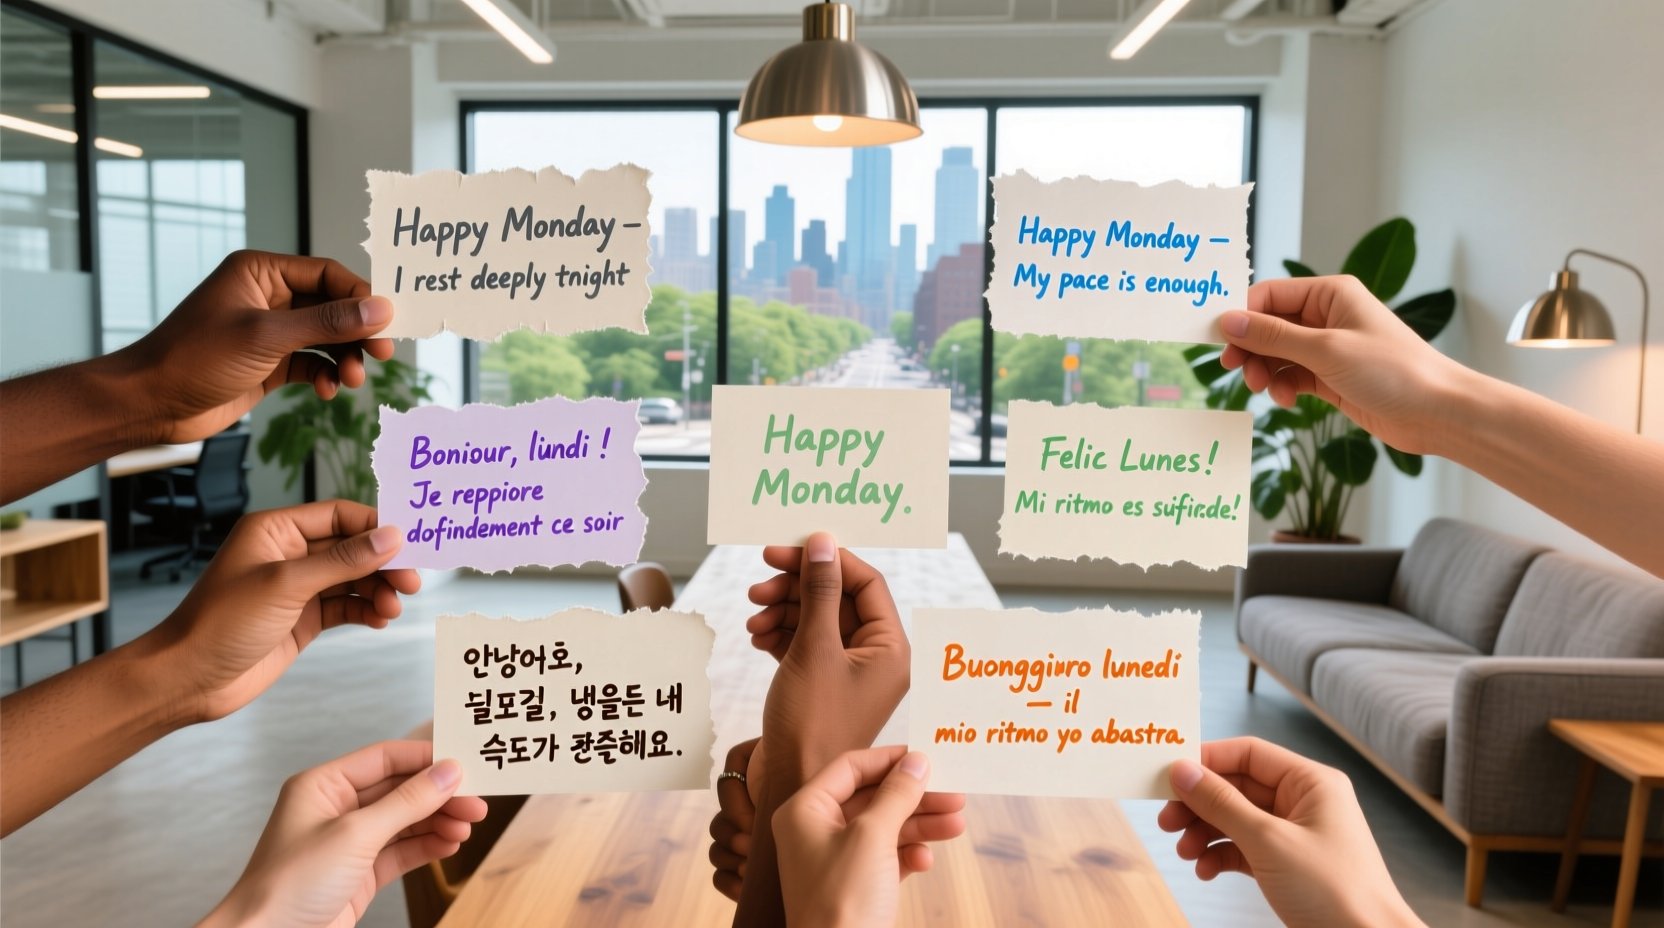 Happy Monday –
I rest deeply tnight
Happy Monday –
My pace is enough.
Boniour, lundi !
Je reppiore
dofindement ce soir
Happy
Monday.
Felic Lunes!
Mi ritmo es sufircde!
안낭어호,
속도가
Buonggiuro lunedi
— il
mio ritmo yo abastra